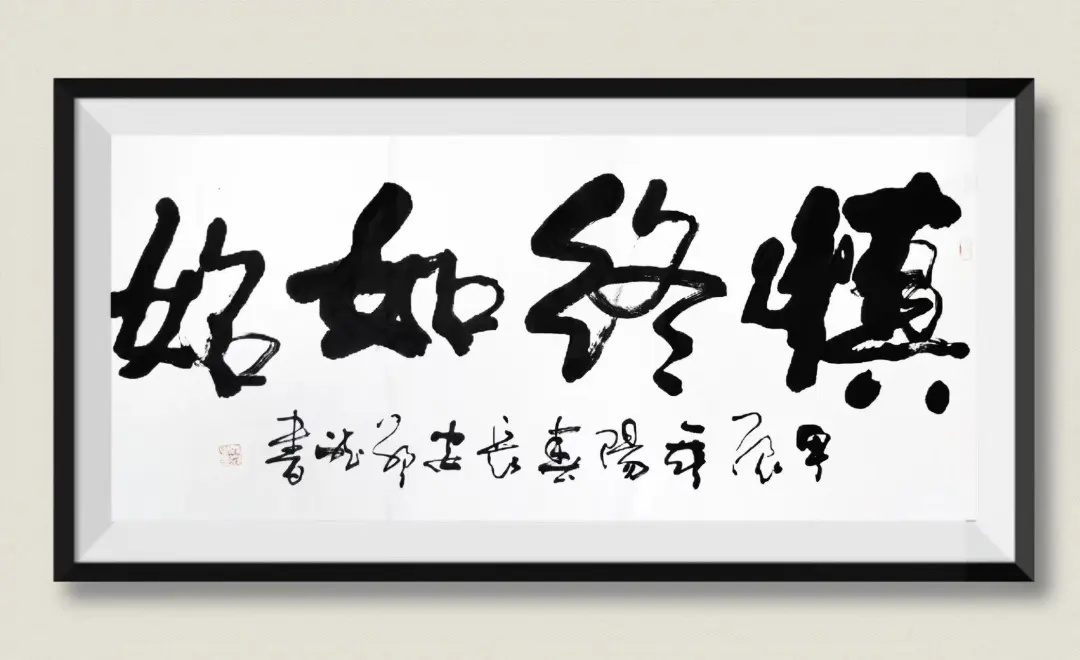 慎終如始
甲辰年陽春長安書